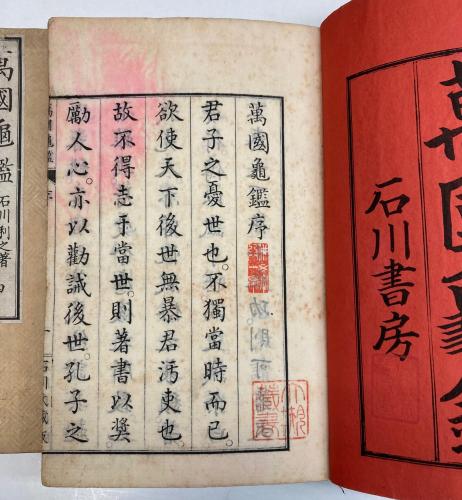 萬國龜鑑
石川書房
萬國龜鑑序
君子之憂世也。不獨當時而已。
欲使天下後世無暴君汚吏也
故不得志于當世。則著書以奨
勵人心。亦以勸誡後世。孔子之
萬國龜鑑
序
一
石川氏藏版
萬國龜鑑
石川利之著
四